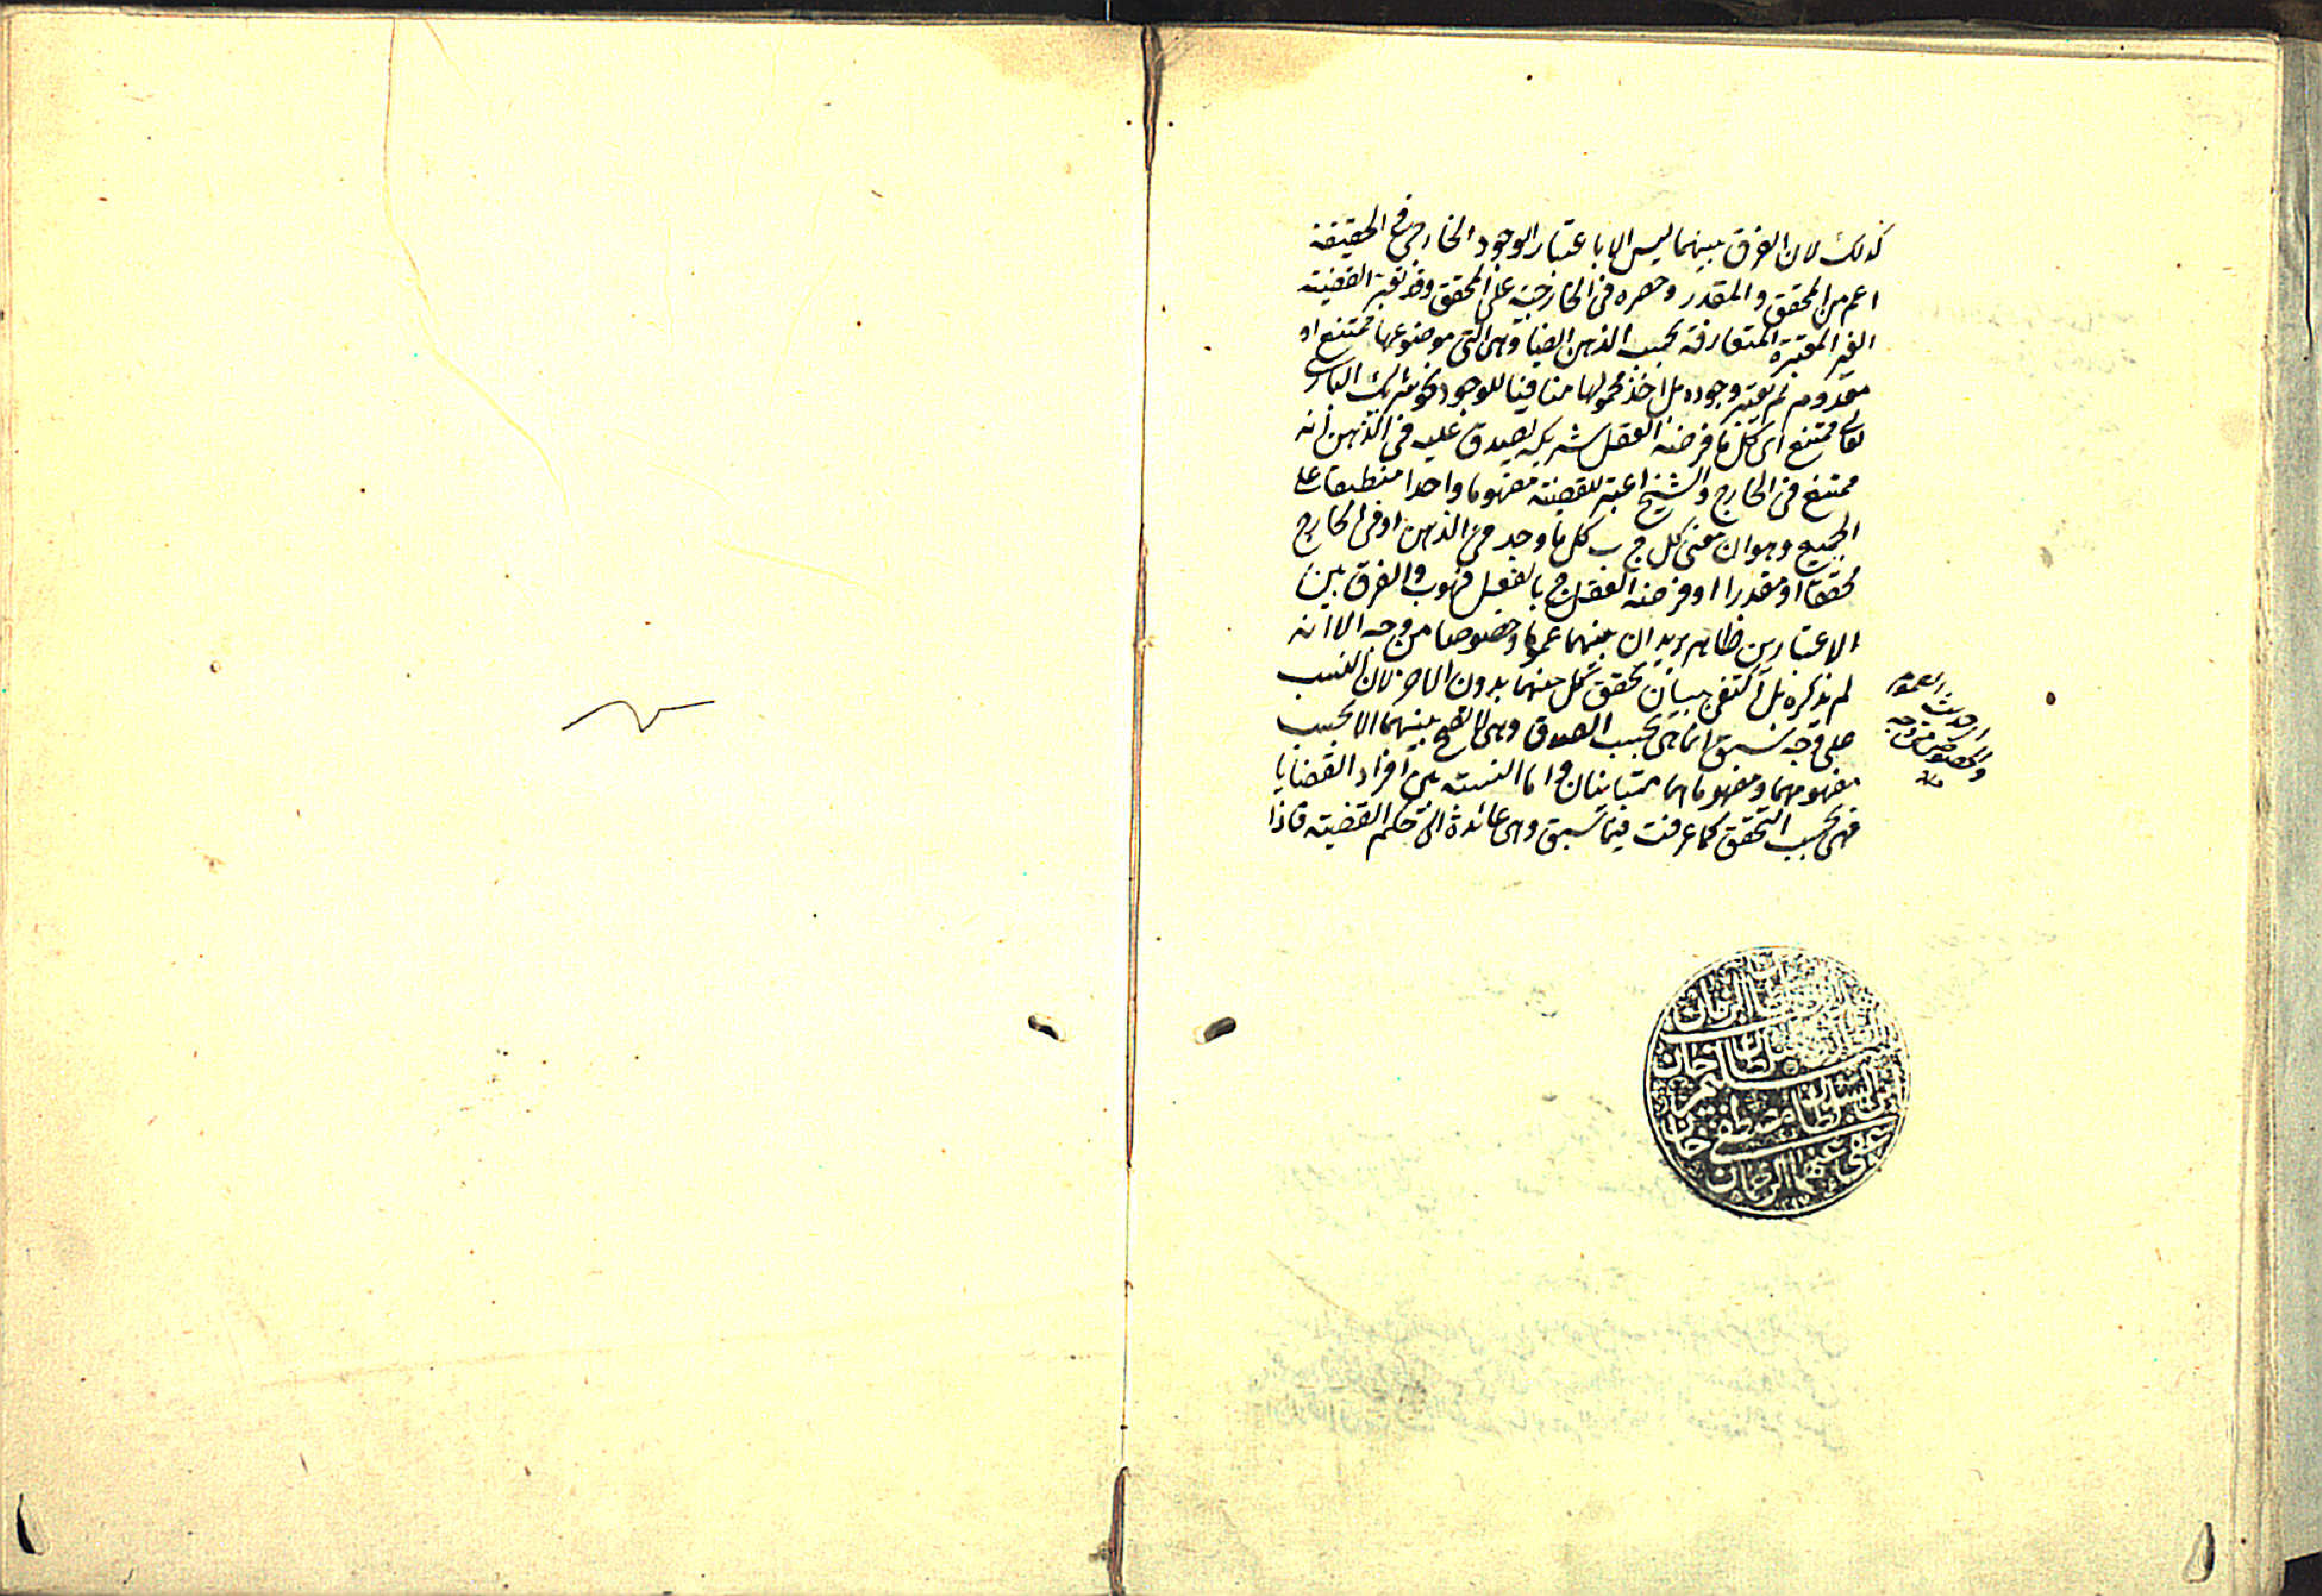 كذلك لان الفرق بينهما ليس الا باعتبار الوجود الخارجى فى الحقيقة
اعم من المحقق والمقدر وحصره فى الخارجية على المحقق وقد تعتبر القضية
الغير المعتبرة المتعارفة بحسب الذهن ايضا وهى التى موضوعها ممتنع او
معدوم لم يعتبر وجوده بل اخذ محمولها منافيا للوجود نحو شريك البارى
تعالى ممتنع اى كل ما فرضه العقل شريكه يصدق عليه فى الذهن انه
ممتنع فى الخارج والشيخ اعتبر للقضية مفهوما واحدا منطبقا على
الجميع وهو ان معنى كل ج ب كل ما وجد فى الذهن او فى الخارج
محققا او مقدرا او فرضه العقل ج بالفعل فهو ب والفرق بين
الاعتبارين ظاهر يريد ان بينهما عموما وخصوصا من وجه الا انه
لم يذكره بل اكتفى ببيان تحقق كل منهما بدون الاخر لان النسب
على وجه سبق انما هى بحسب الصدق وهى لا تصح بينهما الا بحسب
مفهومهما ومفهوماهما متباينان واما النسبة بين افراد القضايا
فهى بحسب التحقق كما عرفت فيما سبق وهى عائدة الى حكم القضية فاذا
العموم
والخصوص من وجه
منه
الزمان
سلطان سليم خان
بن السلطان مصطفى خان
عفى عنهما الرحمان